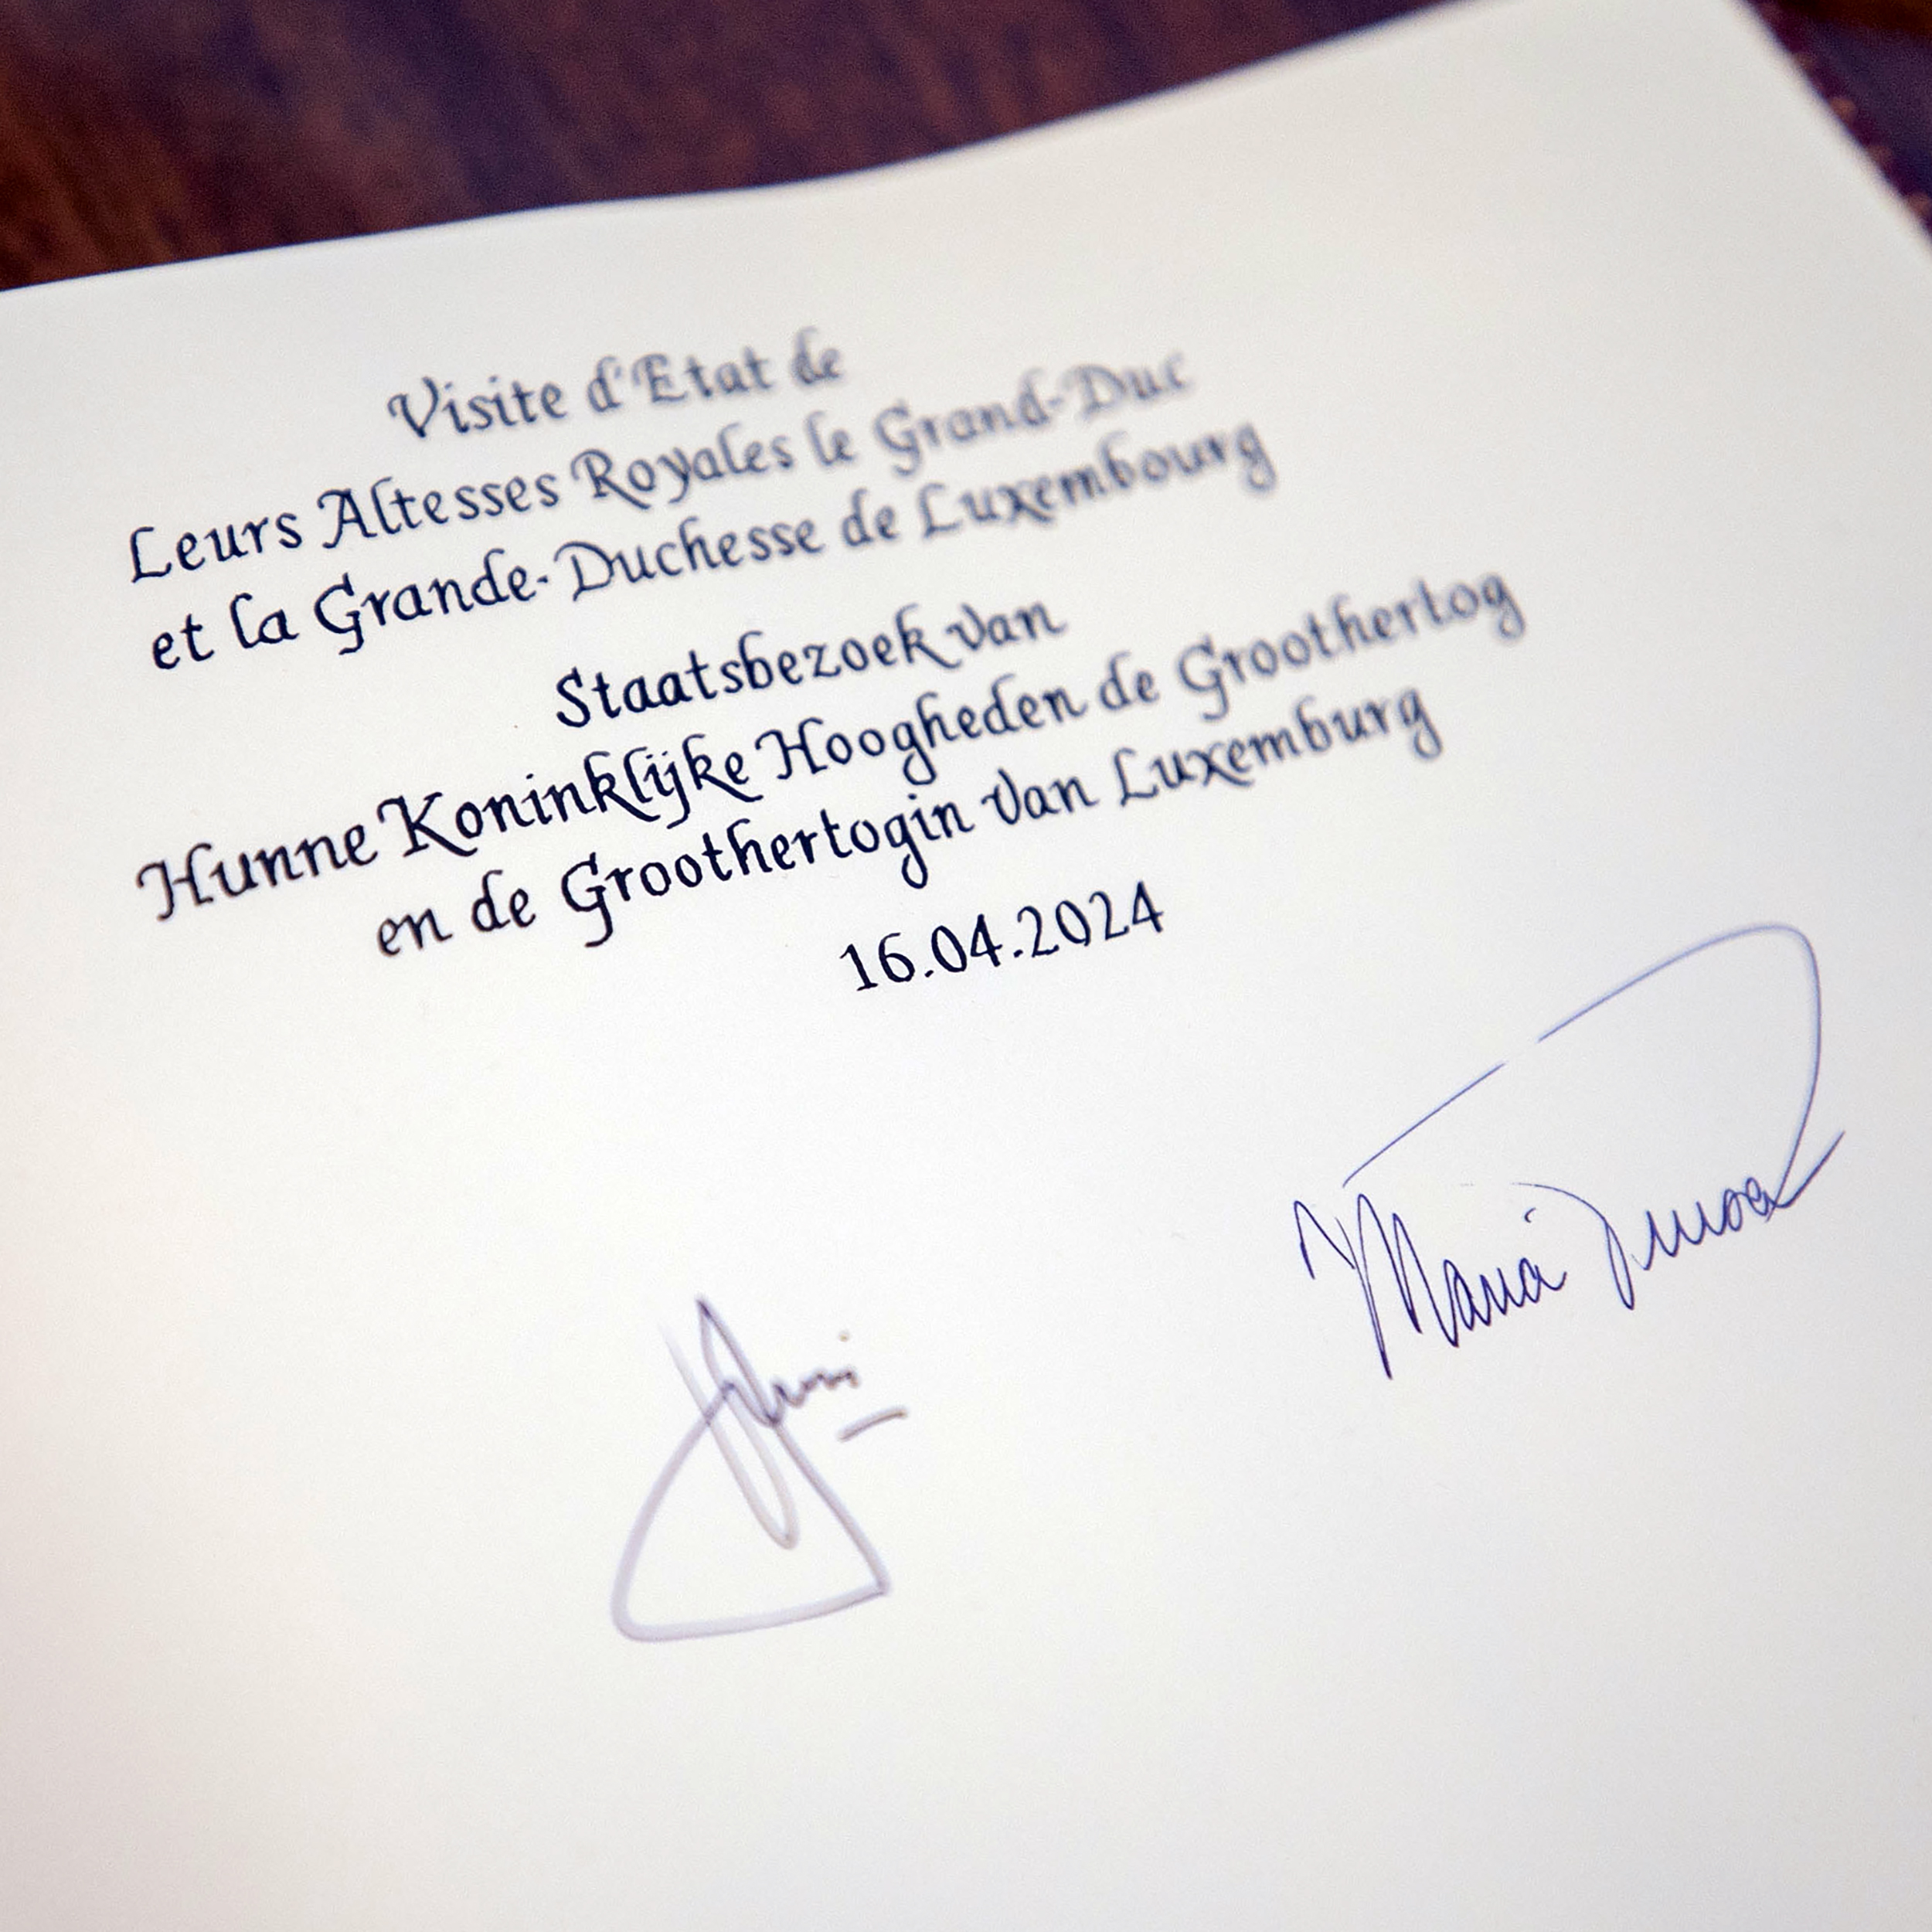 Visite d'Etat de
Leurs Altesses Royales le Grand-Duc
et la Grande-Duchesse de Luxembourg
Staatsbezoek van
Hunne Koninklijke Hoogheden de Groothertog
en de Groothertogin van Luxemburg
16.04.2024
Maria Teresa
Henri